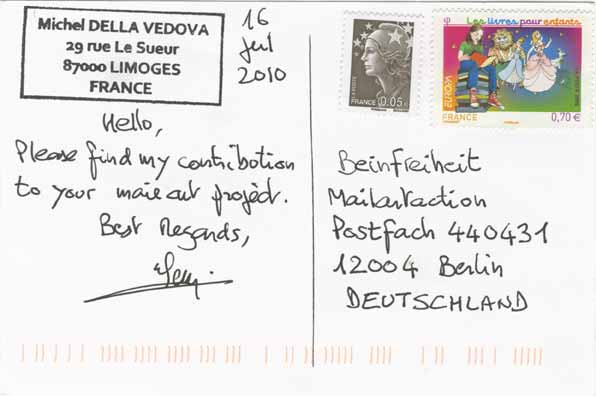 Michel DELLA VEDOVA
29 rue Le Sueur
87000 LIMOGES
FRANCE
16
jul
2010
Hello,
Please find my contribution
to your maieart projèct.
Best Regards,
LA POSTE
FRANCE 0.05€
Les livres pour enfants
EUROPA
FRANCE
0,70 €
Beinfreiheit
Mailartaction
Postfach 440431
12004 Berlin
DEUTSCHLAND